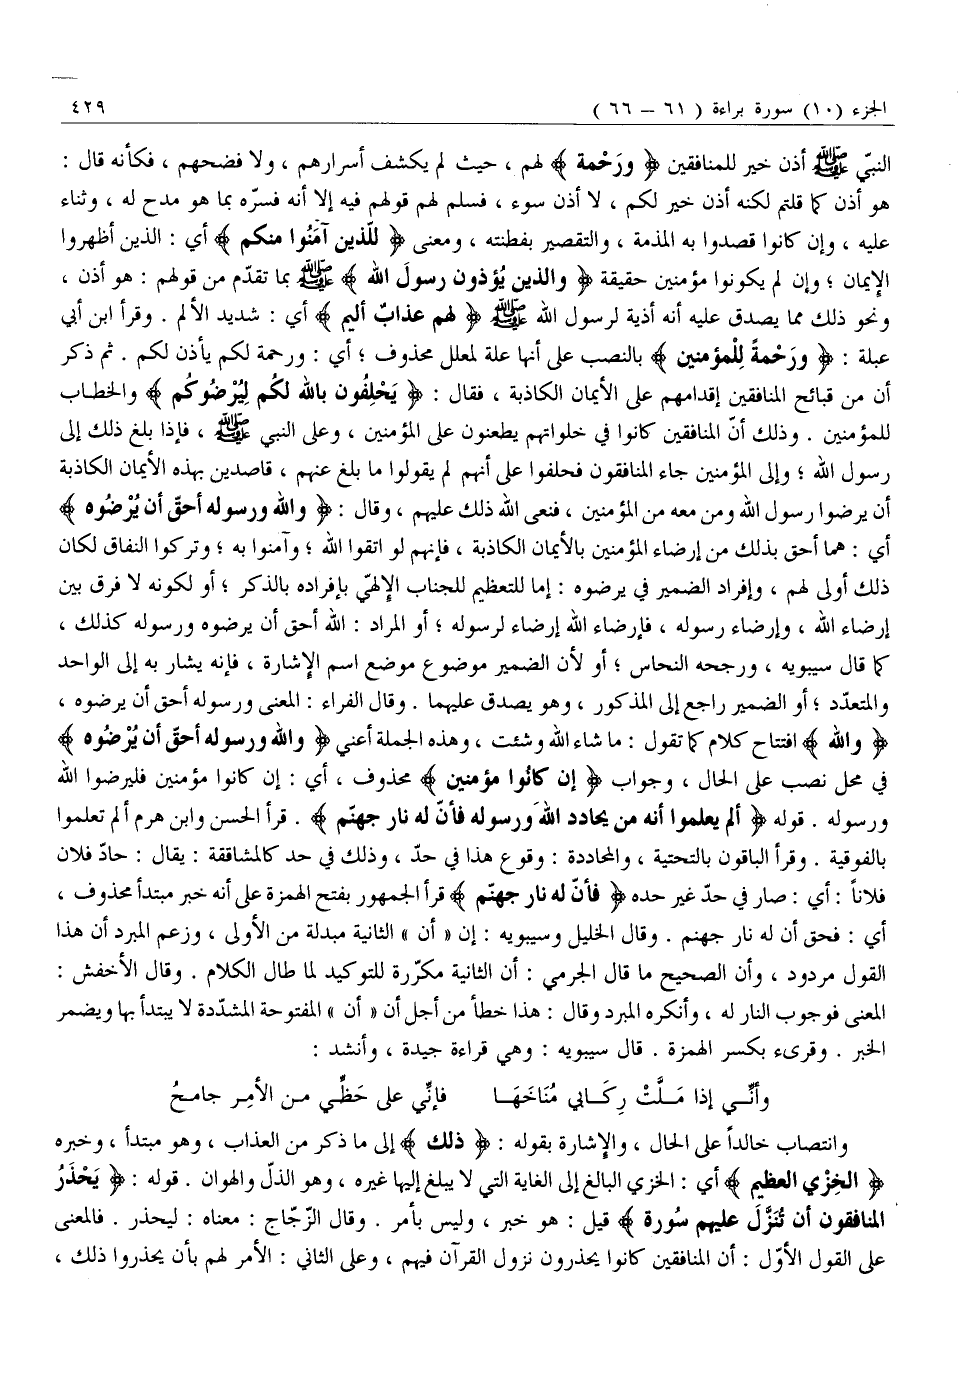 الجزء (١٠) سورة براءة ( ٦١ – ٦٦ ) ٤٢٩
النبيّ ﷺ أذن خير للمنافقين ﴿ ورَحْمة ﴾ لهم ، حيث لم يكشف أسرارهم ، ولا فضحهم ، فكأنه قال :
هو أذن كما قلتم لكنه أذن خير لكم ، لا أذن سوء ، فسلم لهم قولهم فيه إلا أنه فسرّه بما هو مدح له ، وثناء
عليه ، وإن كانوا قصدوا به المذمة ، والتقصير بفطنته ، ومعنى ﴿ للّذين آمَنُوا منكم ﴾ أي : الذين أظهروا
الإيمان ؛ وإن لم يكونوا مؤمنين حقيقة ﴿ والذين يُؤذون رسولَ الله ﴾ ﷺ بما تقدّم من قولهم : هو أذن ،
ونحو ذلك مما يصدق عليه أنه أذية لرسول الله ﷺ ﴿ لهم عذابٌ أليم ﴾ أي : شديد الألم . وقرأ ابن أبي
عبلة : ﴿ ورَحْمةً لِلْمؤمنين ﴾ بالنصب على أنها علة لمعلل محذوف ؛ أي : ورحمة لكم يأذن لكم . ثم ذكر
أن من قبائح المنافقين إقدامهم على الأيمان الكاذبة ، فقال : ﴿ يَحْلِفُون بالله لكُم لِيُرْضُوكُم ﴾ والخطاب
للمؤمنين . وذلك أنّ المنافقين كانوا في خلواتهم يطعنون على المؤمنين ، وعلى النبي ﷺ ، فإذا بلغ ذلك إلى
رسول الله ؛ وإلى المؤمنين جاء المنافقون فحلفوا على أنهم لم يقولوا ما بلغ عنهم ، قاصدين بهذه الأيمان الكاذبة
أن يرضوا رسول الله ومن معه من المؤمنين ، فنعى الله ذلك عليهم ، وقال : ﴿ والله ورسوله أحقّ أن يُرْضُوه ﴾
أي : هما أحق بذلك من إرضاء المؤمنين بالأيمان الكاذبة ، فإنهم لو اتقوا الله ؛ وآمنوا به ؛ وتركوا النفاق لكان
ذلك أولى لهم ، وإفراد الضمير في يرضوه : إما للتعظيم للجناب الإلهيّ بإفراده بالذكر ؛ أو لكونه لا فرق بين
إرضاء الله ، وإرضاء رسوله ، فإرضاء الله إرضاء لرسوله ؛ أو المراد : الله أحق أن يرضوه ورسوله كذلك ،
كما قال سيبويه ، ورجحه النحاس ؛ أو لأن الضمير موضوع موضع اسم الإشارة ، فإنه يشار به إلى الواحد
والمتعدّد ؛ أو الضمير راجع إلى المذكور ، وهو يصدق عليهما . وقال الفراء : المعنى ورسوله أحق أن يرضوه ،
﴿ والله ﴾ افتتاح كلام كما تقول : ما شاء الله وشئت ، وهذه الجملة أعني ﴿ والله ورسوله أحقّ أن يُرْضُوه ﴾
في محل نصب على الحال ، وجواب ﴿ إن كانُوا مؤمنين ﴾ محذوف ، أي : إن كانوا مؤمنين فليرضوا الله
ورسوله . قوله ﴿ ألم يعلموا أنه من يحادد اللهَ ورسوله فأنّ له نار جهنّم ﴾ . قرأ الحسن وابن هرم ألم تعلموا
بالفوقية . وقرأ الباقون بالتحتية ، والمحاددة : وقوع هذا في حدّ ، وذلك في حد كالمشاققة : يقال : حادّ فلان
فلاناً : أي : صار في حدّ غير حده ﴿ فأنّ له نار جهنّم ﴾ قرأ الجمهور بفتح الهمزة على أنه خبر مبتدأ محذوف ،
أي : فحق أن له نار جهنم . وقال الخليل وسيبويه : إن « أن » الثانية مبدلة من الأولى ، وزعم المبرد أن هذا
القول مردود ، وأن الصحيح ما قال الجرمي : أن الثانية مكرّرة للتوكيد لما طال الكلام . وقال الأخفش :
المعنى فوجوب النار له ، وأنكره المبرد وقال : هذا خطأ من أجل أن « أن » المفتوحة المشدّدة لا يبتدأ بها ويضمر
الخبر . وقرىء بكسر الهمزة . قال سيبويه : وهي قراءة جيدة ، وأنشد :
وأنّي إذا مَلَّتْ رِكَابي مُنَاخَهَا فإنِّي على حَظِّي من الأمِر جامحُ
وانتصاب خالداً على الحال ، والإشارة بقوله : ﴿ ذلك ﴾ إلى ما ذكر من العذاب ، وهو مبتدأ ، وخبره
﴿ الخِزْي العظيم ﴾ أي : الخزي البالغ إلى الغاية التي لا يبلغ إليها غيره ، وهو الذلّ والهوان . قوله : ﴿ يَحْذَرُ
المنافقون أن تُنَزَّلَ عليهم سُورة ﴾ قيل : هو خبر ، وليس بأمر . وقال الزّجّاج : معناه : ليحذر . فالمعنى
على القول الأوّل : أن المنافقين كانوا يحذرون نزول القرآن فيهم ، وعلى الثاني : الأمر لهم بأن يحذروا ذلك ،